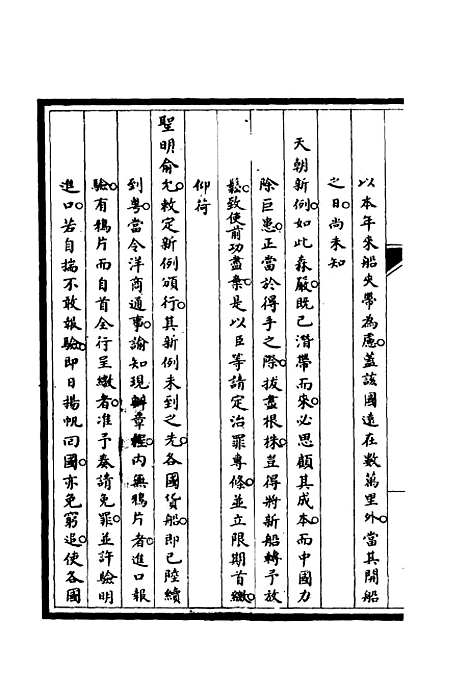 以本年來船夾帶為慮蓋該國遠在數萬里外當其開船
之日尚未知
天朝新例如此森嚴既已潛帶而來必思顧其成本而中國力
除巨患正當於得手之際拔盡根株豈得將新船轉予放
鬆致使前功盡棄是以臣等請定治罪專條並立限期首繳
仰荷
聖明俞允敕定新例頒行其新例未到之先各國貨船即已陸續
到粵當令洋商通事諭知現辦章程內無鴉片者進口報
驗有鴉片而自首全行呈繳者准予奏請免罪並許驗明
進口若自揣不敢報驗即日揚帆回國亦免窮追使各國